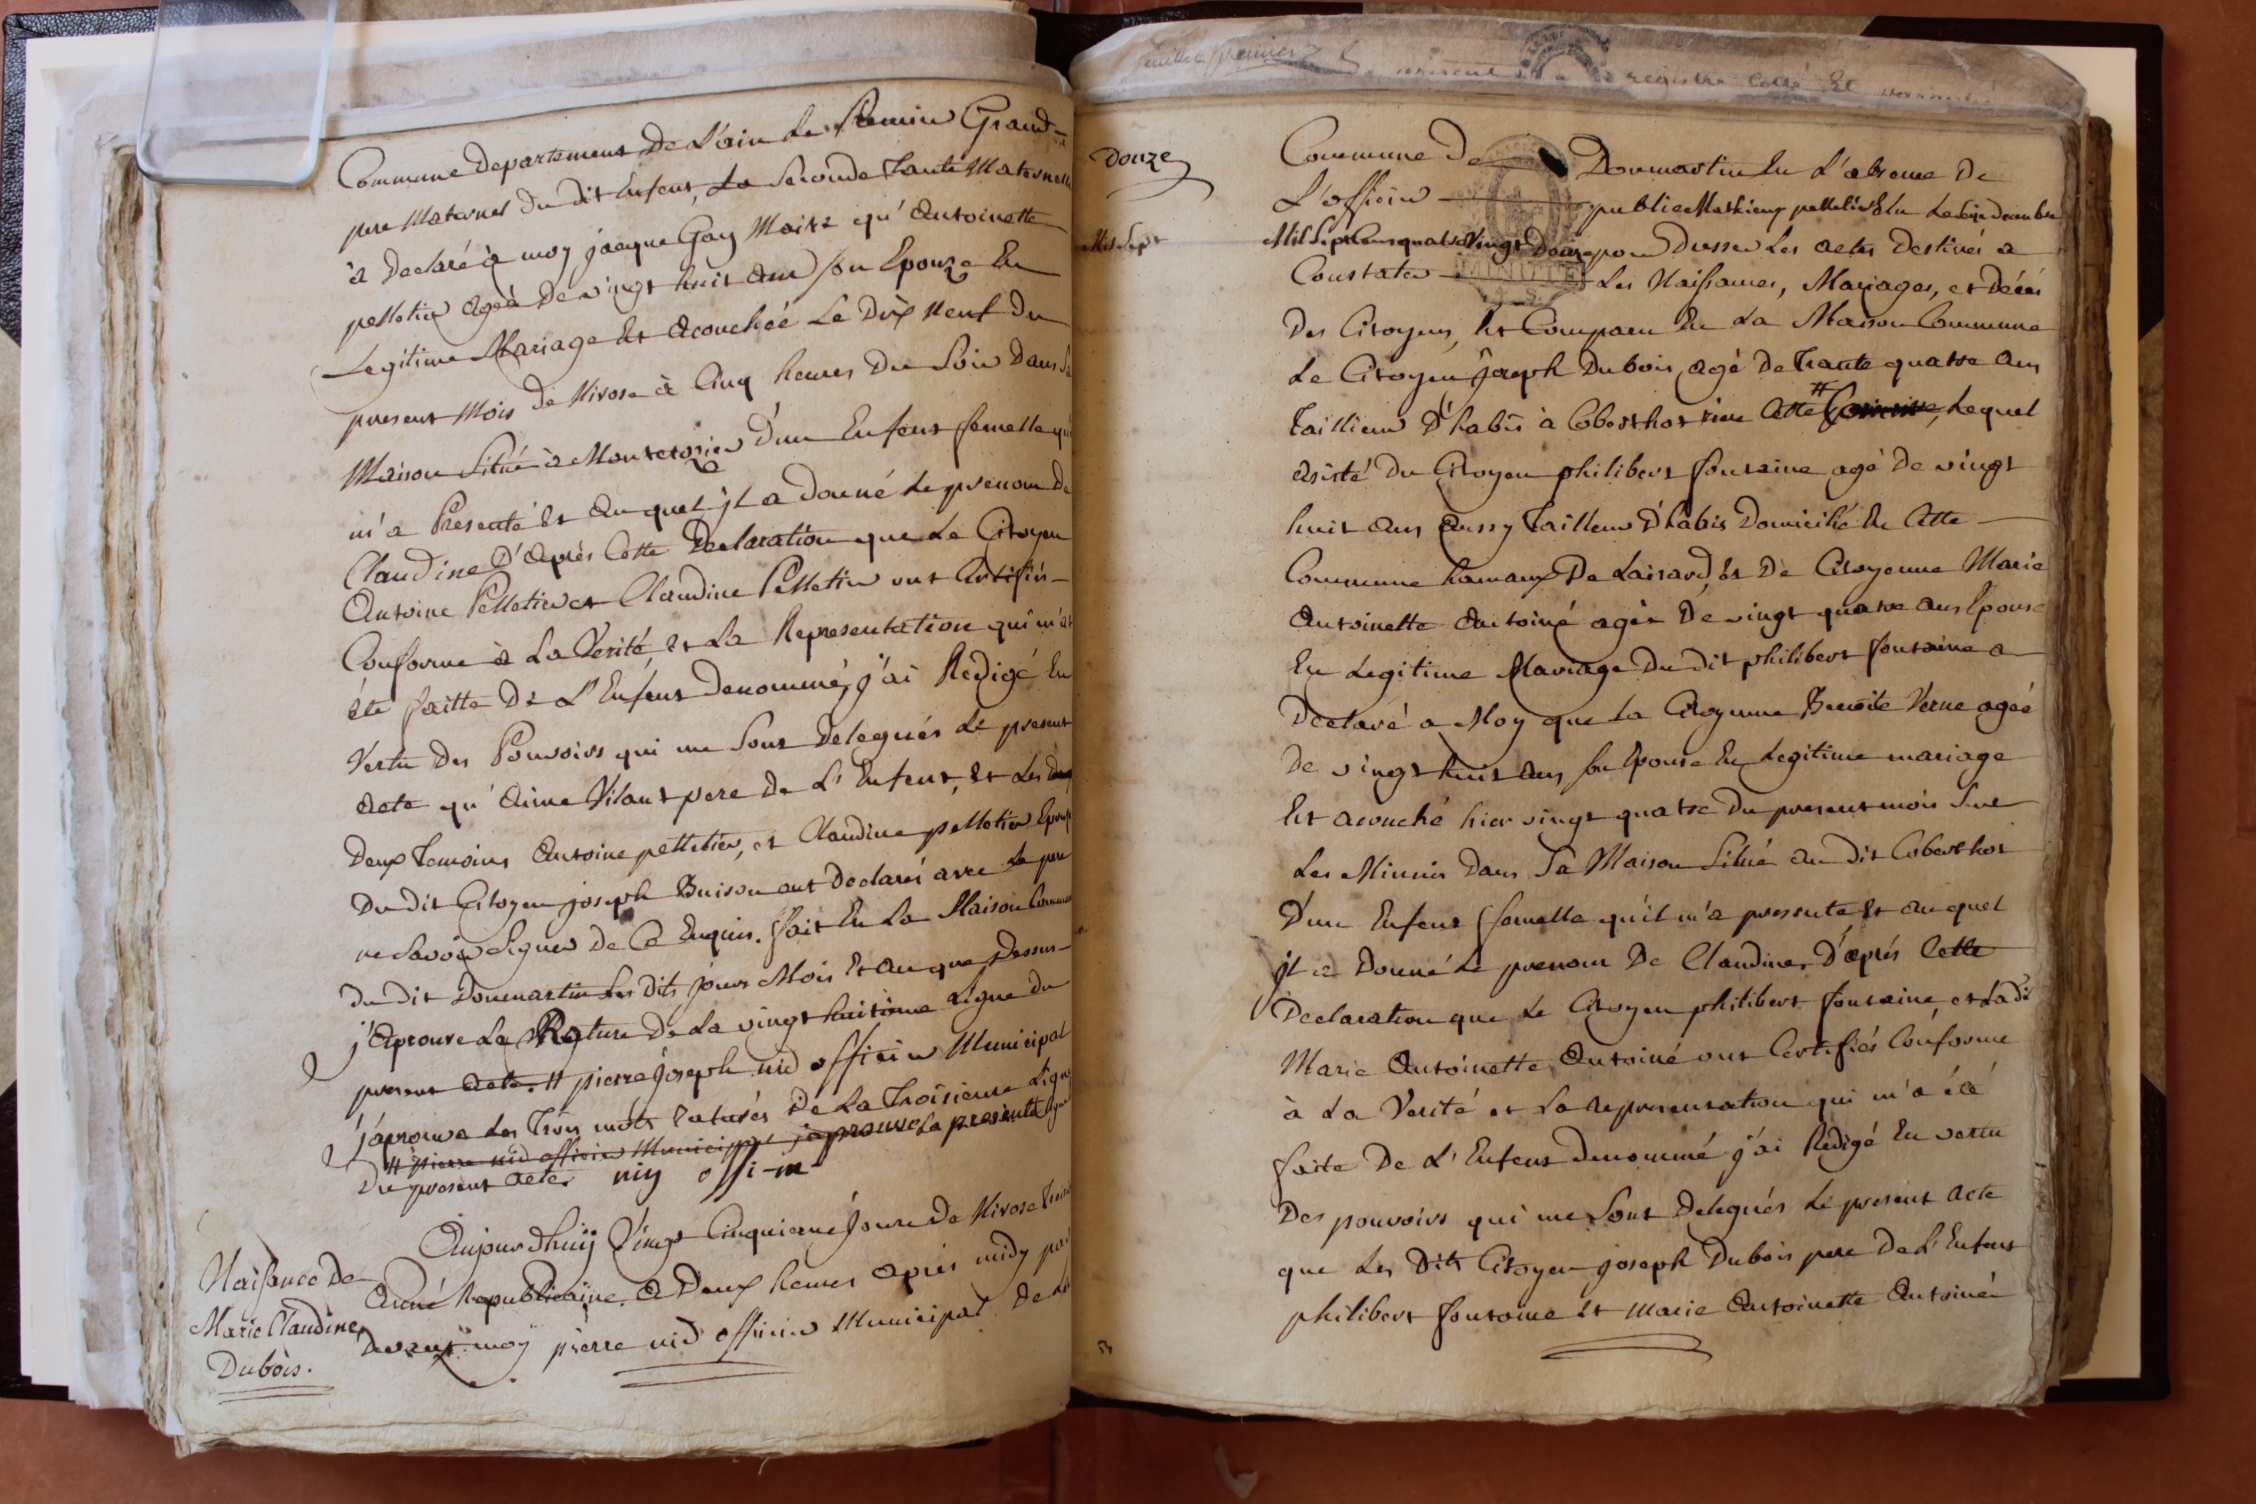 Commune departement De L'ain Le Premier Grand
pere Maternel Du dit Enfent, La Seconde Tante Maternelle
à Declaré à moy jacque Gay Maire qu'Antoinette
pelletier ageé De vingt huit ans son Epouze En
Legitime Mariage Et Acouchéé Le Dix neuf Du
present Mois De Nivose à Cinq heures Du Soir Dans Sa
Maison Situé à D'un Enfent femelle qui
m'a Presenté Et Auquel jl a Donné Le prenom De
Claudine D'Après Cette Declaration que Le Citoyen
Antoine Pelletier et Claudine Pelletier ont Certifiés
Conforme à La Verité Et La Representation qui m'at
été faitte De L'Enfent denommé, j'ai Redigé En
Vertu Des Pouvoirs qui me Sont Delegués Le present
Acte qu'Aime Vilaut pere De L'Enfent, Et Les
Deux Temoins Antoine pelletier, et Claudine pelletier Epouse
Du dit Citoyen joseph Buison ont Declarés avec Le pere
ne Savoir Signer De Ce Enquis. fait En La Maison Commune
du dit Dommartin Les dits jours Mois Et An que Dessus
j'Aprouve La Rature De La vingt huitieme Ligne du
present Acte. # pierre joseph nid officier Municipal
j'aprouve Les Trois mots raturés De La Troisieme Ligne
# pierre nid officier Municipal japrouve La presente ligne
Du present acte niy offi-m
Naissance De
Marie Claudine
Dubois.
Aujourdhuij Vingt Cinquieme Jour De Nivose
Anné Republicaine. A Deux heures après midy par
devant moy pierre nid officier Municipal De La
Douze
Mil Sept
Commune De Dommartin En L'absence De
L'officier public Mathieux pelletier Elu Le
Mil Sept Cent quatre Vingt Douze pour Dresser Les actes Destinés a
Constater Les Naissances, Mariages, et Décés
Des Citoyens, Et Comparu En La Maison Commune
Le Citoyen joseph Dubois, agé De Trante quatre Ans
Taillieur D'habis à Coberthot Cette # Lequel
Asisté Du Citoyen philibert fontaine agé De vingt
huit Ans Aussy Tailleur D'habis Domicilié En Cette
Commune hamaux De Laisard, Et De Citoyenne Marie
Antoinette Antoiné ageé De vingt quatre Ans Epouse
En Legitime Mariage Du dit philibert fontaine a
Declaré a Moy que La Citoyenne Benoite Verne ageé
De vingt huit Ans son Epouse En Legitime mariage
Et acouché hier vingt quatre Du present mois Sur
Les Minuis Dans Sa Maison Situé Au dit Coberthot
D'un Enfent femelle qu'il m'a presenté Et Auquel
jl a Donné Le prenom De Claudine. D'après Cette
Declaration que Le Citoyen philibert fontaine, et Ladi
Marie Antoinette Antoiné ont Certifiés Conforme
à La Verité et La representation qui m'a été
faite De L'Enfent Denommé j'ai Redigé En vertu
Des pouvoirs qui me Sont Delegués Le present Acte
que Les Dits Citoyen joseph Dubois pere De L'Enfent
philibert fontaine Et Marie Antoinette Antoiné